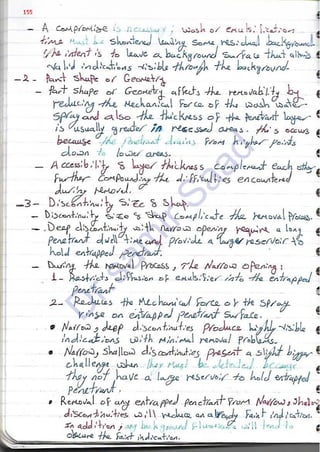 155
- A compromise is necessary; wash or emulsification
time must be shortened leaving some residual background
The intent is to leave a background surface that allows
valid indications visible through the background
-2- Part shape or Geometry
- Part shape or Geometry affects the removability by
reducing the Mechanical Force of the wash water
spray and also the thickness of the penetrant layer
is usually greater in recessed areas. this occurs
because the penetrant drains from higher points
down to lower areas.
- Accessibility & layer thickness complement each other
further compounding the difficulties encountered
during removal.
-3- Discontinuity Size & Shap.
- Discontinuity Size & Shap complicate the removal Process.
- Deep discontinuity with Narrow opening require a long
penetrant dwell time and provide a larger reservoir to
hold entrapped penetrant.
- During the removal Process, The Narrow opening:
1- Restricts diffusion of emulsifier into the entrapped
penetrant
2- Reduces the Mechanical Force of the Spray
rinse on entrapped penetrant Surface.
• Narrow, deep discontinuties Produce highly visible
indications with Minimal removal Problems.
• Narrow, Shallow discontinuties present a slight bigger
challenge when they must be detected because
they not have a large reservoir to hold entrapped
penetrant.
• Removal of any entrapped penetrant From Narrow, Shallow
discontinuities will reduce an already Faint indication.
In addition, any background fluorescence will tend to
obscure the Faint indication.